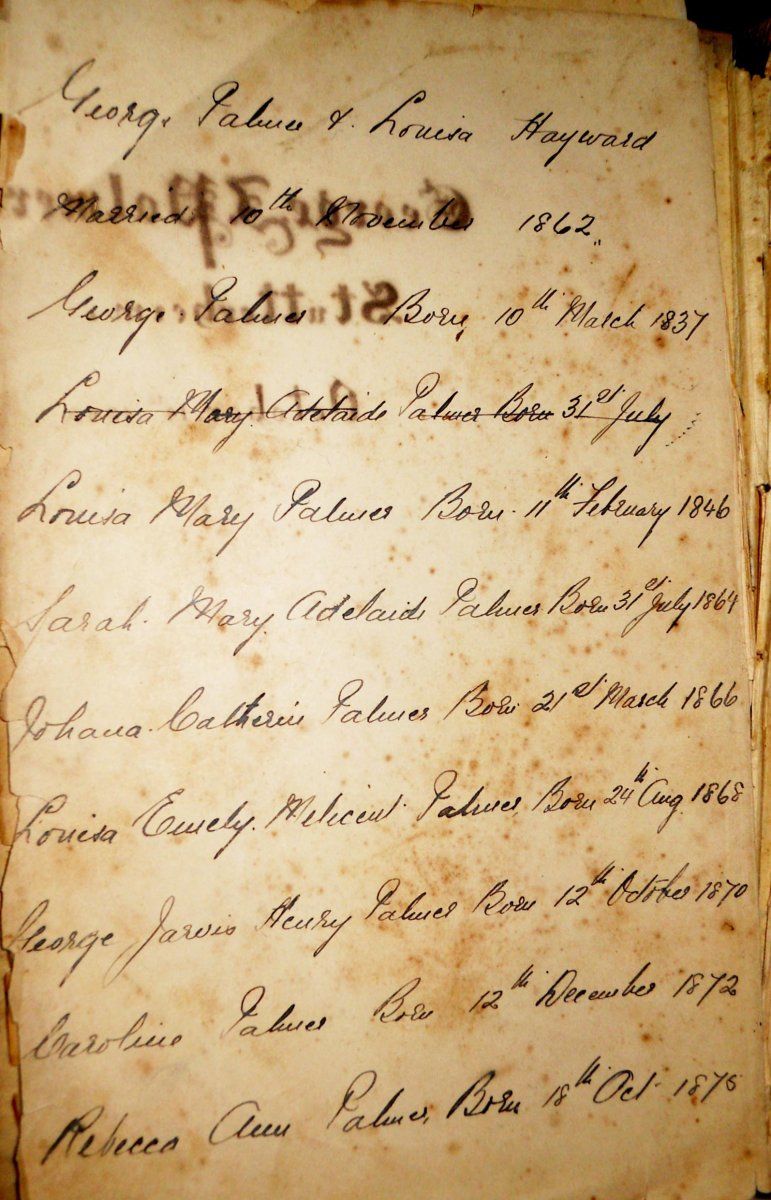 George Palmer & Louisa Hayward
Married 10th November 1862
George Palmer Born 10th March 1837
Louisa Mary Adelaide Palmer Born 31st July
Louisa Mary Palmer Born 11th February 1846
Sarah Mary Adelaide Palmer Born 31st July 1864
Johana Catherin Palmer Born 21st March 1866
Louisa Emely Melicent Palmer Born 24th Aug 1868
George Jarvis Henry Palmer Born 12th October 1870
Caroline Palmer Born 12th December 1872
Rebecca Ann Palmer Born 18th Oct